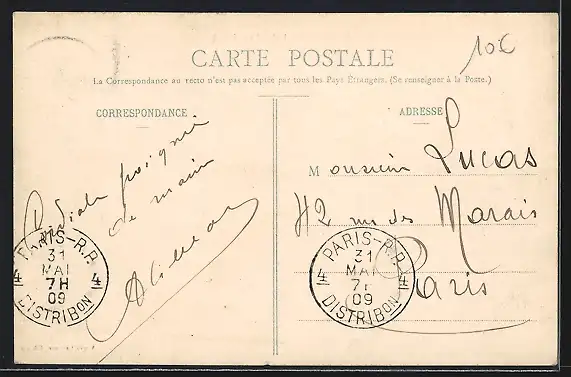 10€
CARTE POSTALE
La Correspondance au recto n'est pas acceptée par tous les Pays Étrangers. (Se renseigner à la Poste.)
CORRESPONDANCE
Cordiale poignée
de main
ADRESSE
Monsieur Lucas
42 rue des Marais
Paris
PARIS - R.P.
31
MAI
7H
09
4 4
DISTRIBON
PARIS - R.P.
31
MAI
7H
09
4 4
DISTRIBON